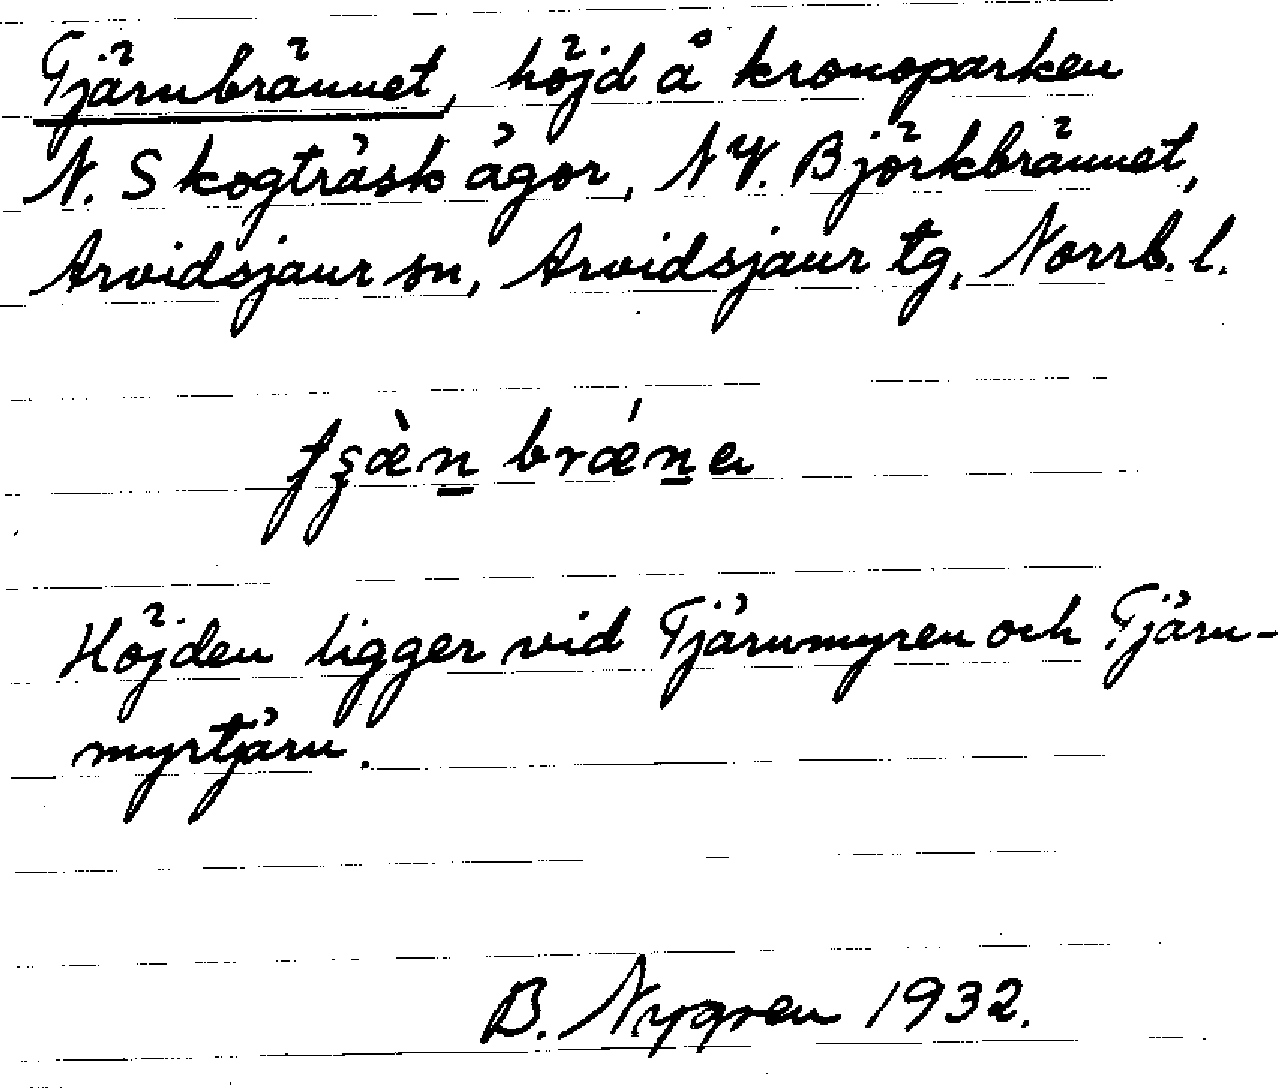 Tjärnbrännet, höjd å kronoparken
N. Skogträsk ägor, NV. Björkbrännet,
Arvidsjaur sn, Arvidsjaur tg, Norrb. l.
brǽn̲a
Höjden ligger vid Tjärnmyren och Tjärn-
myrtjärn.
B. Nygren 1932.